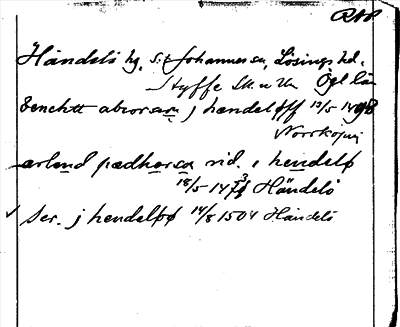 RAP
Händelö hg. S:t Johannes sn, Lösings hd.
Styffe Sk. u. Un Ögl län
benchtt abiorsøn j hændeløff 13/5 1498
Norrköping
ærland pædhorsøn vid. i hendelø
18/5-1473 Händelö
✓ Ser. j hendeløø 14/8 1504 Händelö